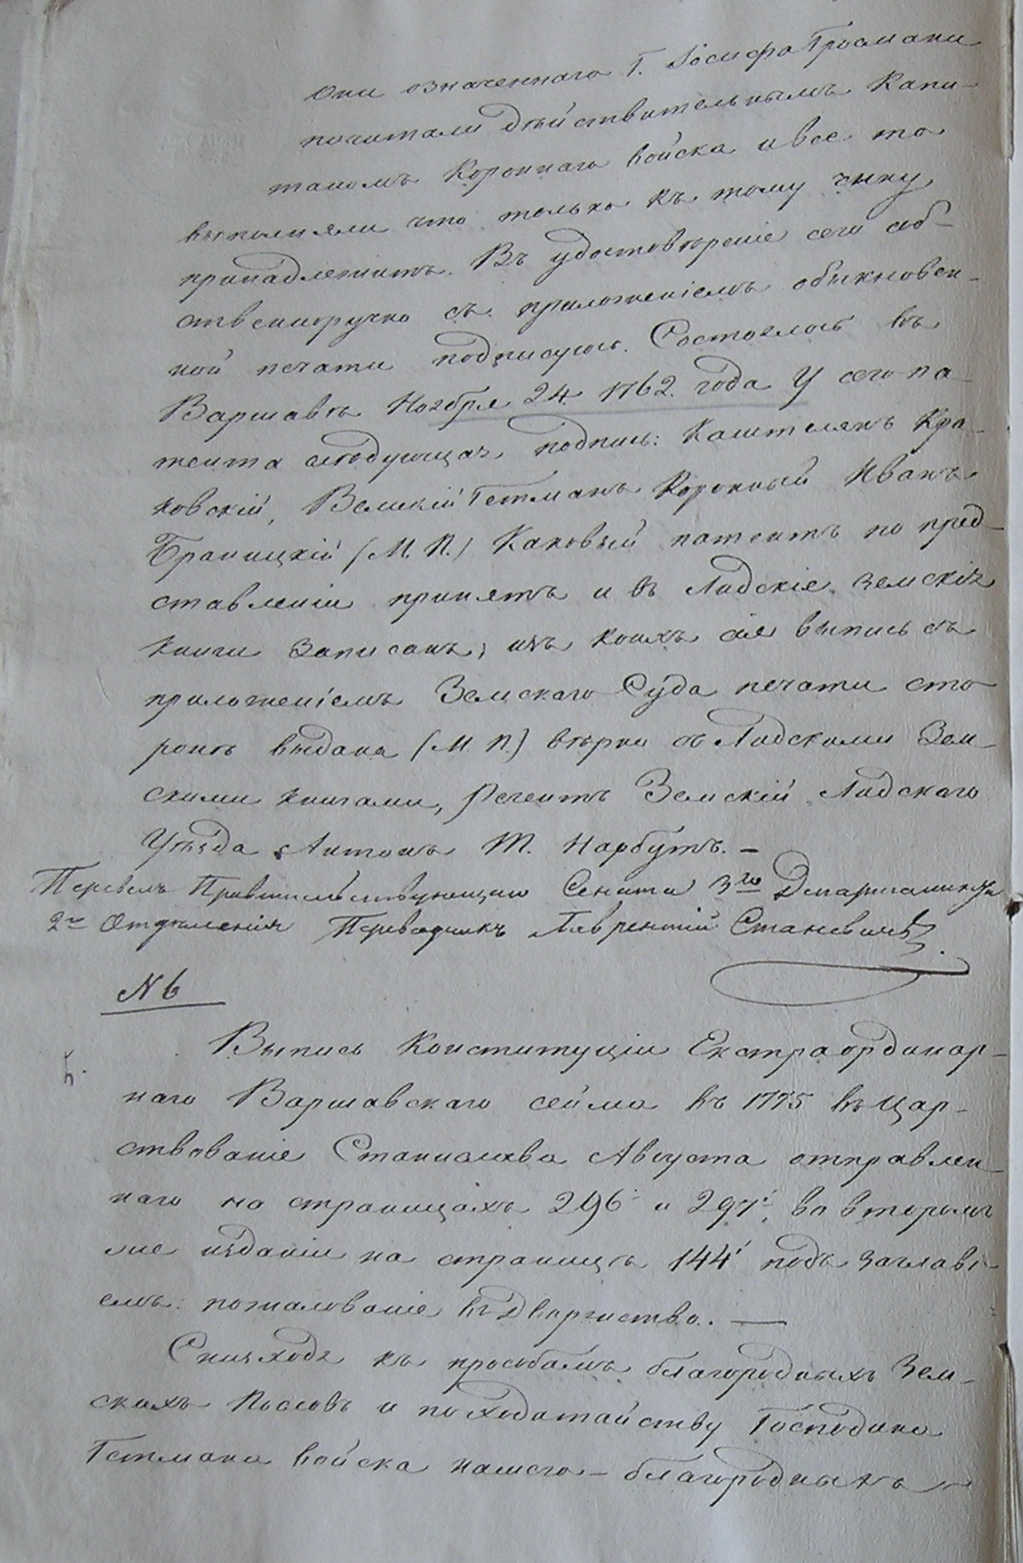 они означеннаго Г. Іосифа Гросмани
почитали дѣйствительнымъ Капи-
таномъ Короннаго войска и все то
выполняли что только къ тому чину
принадлежитъ. Въ удостовѣреніе сего соб-
ственноручно съ приложеніемъ обыкновен-
ной печати подписуюсь. Состоялось въ
Варшавѣ Ноября 24 1762. года У сего па-
тента слѣдующая подпись: Каштелянъ Кра-
ковскій, Великій Гетманъ Коронный Иванъ
Браницкій (М. П.) Каковый патентъ по пред-
ставленіи принятъ и въ Лидскіе земскія
книги записанъ, изъ коихъ сія выпись съ
приложеніемъ Земскаго Суда печати сто
ронѣ выдана (М П.) вѣрно съ Лидскими Зем-
скими книгами, Регентъ Земскій Лидскаго
Уѣзда Антонъ Т. Нарбутъ. —
Перевелъ Правительствующаго Сената 3го Департамента
2го Отдѣленія Переводчикъ Лаврентій Станевичъ.
N 6
Выпись Конституціи Екстраординар-
наго Варшавскаго сейма въ 1775 въ Цар-
ствованіе Станислава Августа отправлен-
наго на страницахъ 296 и 297, во второмъ
же изданіи на страницѣ 144 подъ заглаві-
емъ: пожалованіе въ Дворянство. —
Снисходя къ прозьбамъ благородныхъ Зем-
скихъ Пословъ и по ходатайству Господина
Гетмана войска нашего – благородныхъ